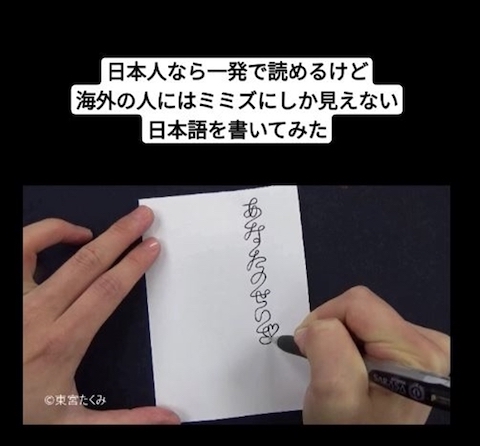 日本人なら一発で読めるけど
海外の人にはミミズにしか見えない
日本語を書いてみた
あなたのせい
©東宮たくみ